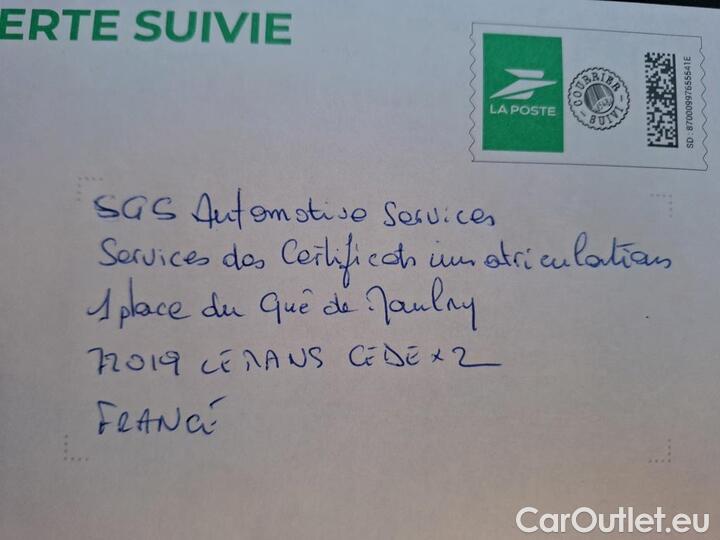 ERTE SUIVIE
LA POSTE
COURRIER SUIVI
SD : 87000997655541E
SGS Automotive Services
Services des Certificats immatriculations
1 place du Gué de Maulny
72019 LE MANS CEDEX 2
FRANCE
CarOutlet.eu